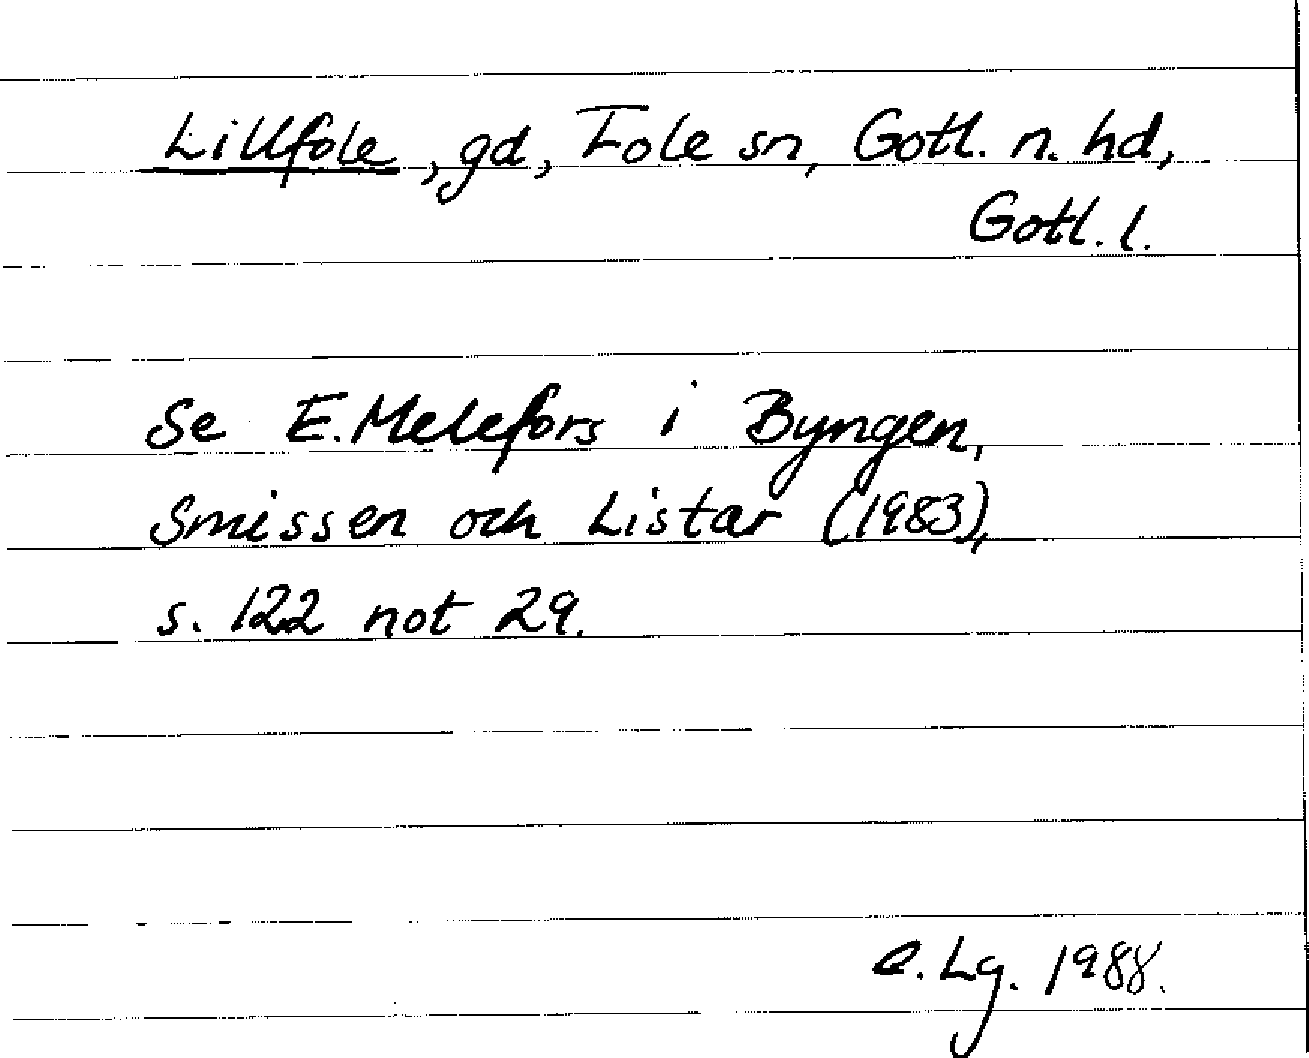 Lillfole, gd, Fole sn, Gotl. n. hd,
Gotl. l.
Se E. Melefors i Byngen,
Smissen och Listar (1983),
s. 122 not 29.
C. Lg. 1988.